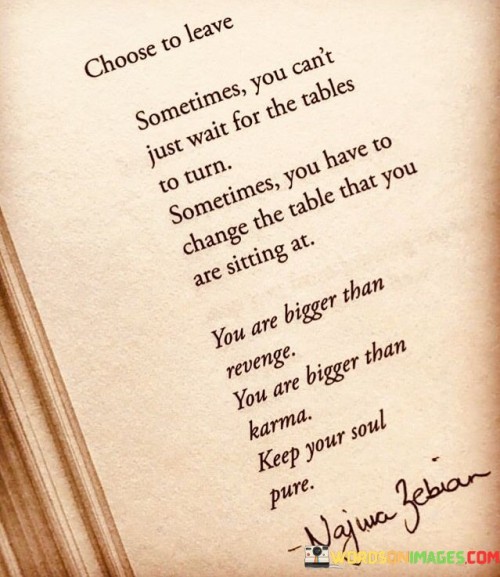 Choose to leave
Sometimes, you can't
just wait for the tables
to turn.
Sometimes, you have to
change the table that you
are sitting at.
You are bigger than
revenge.
You are bigger than
karma.
Keep your soul
pure.
-Najwa Zebian
WORDSONIMAGES.COM